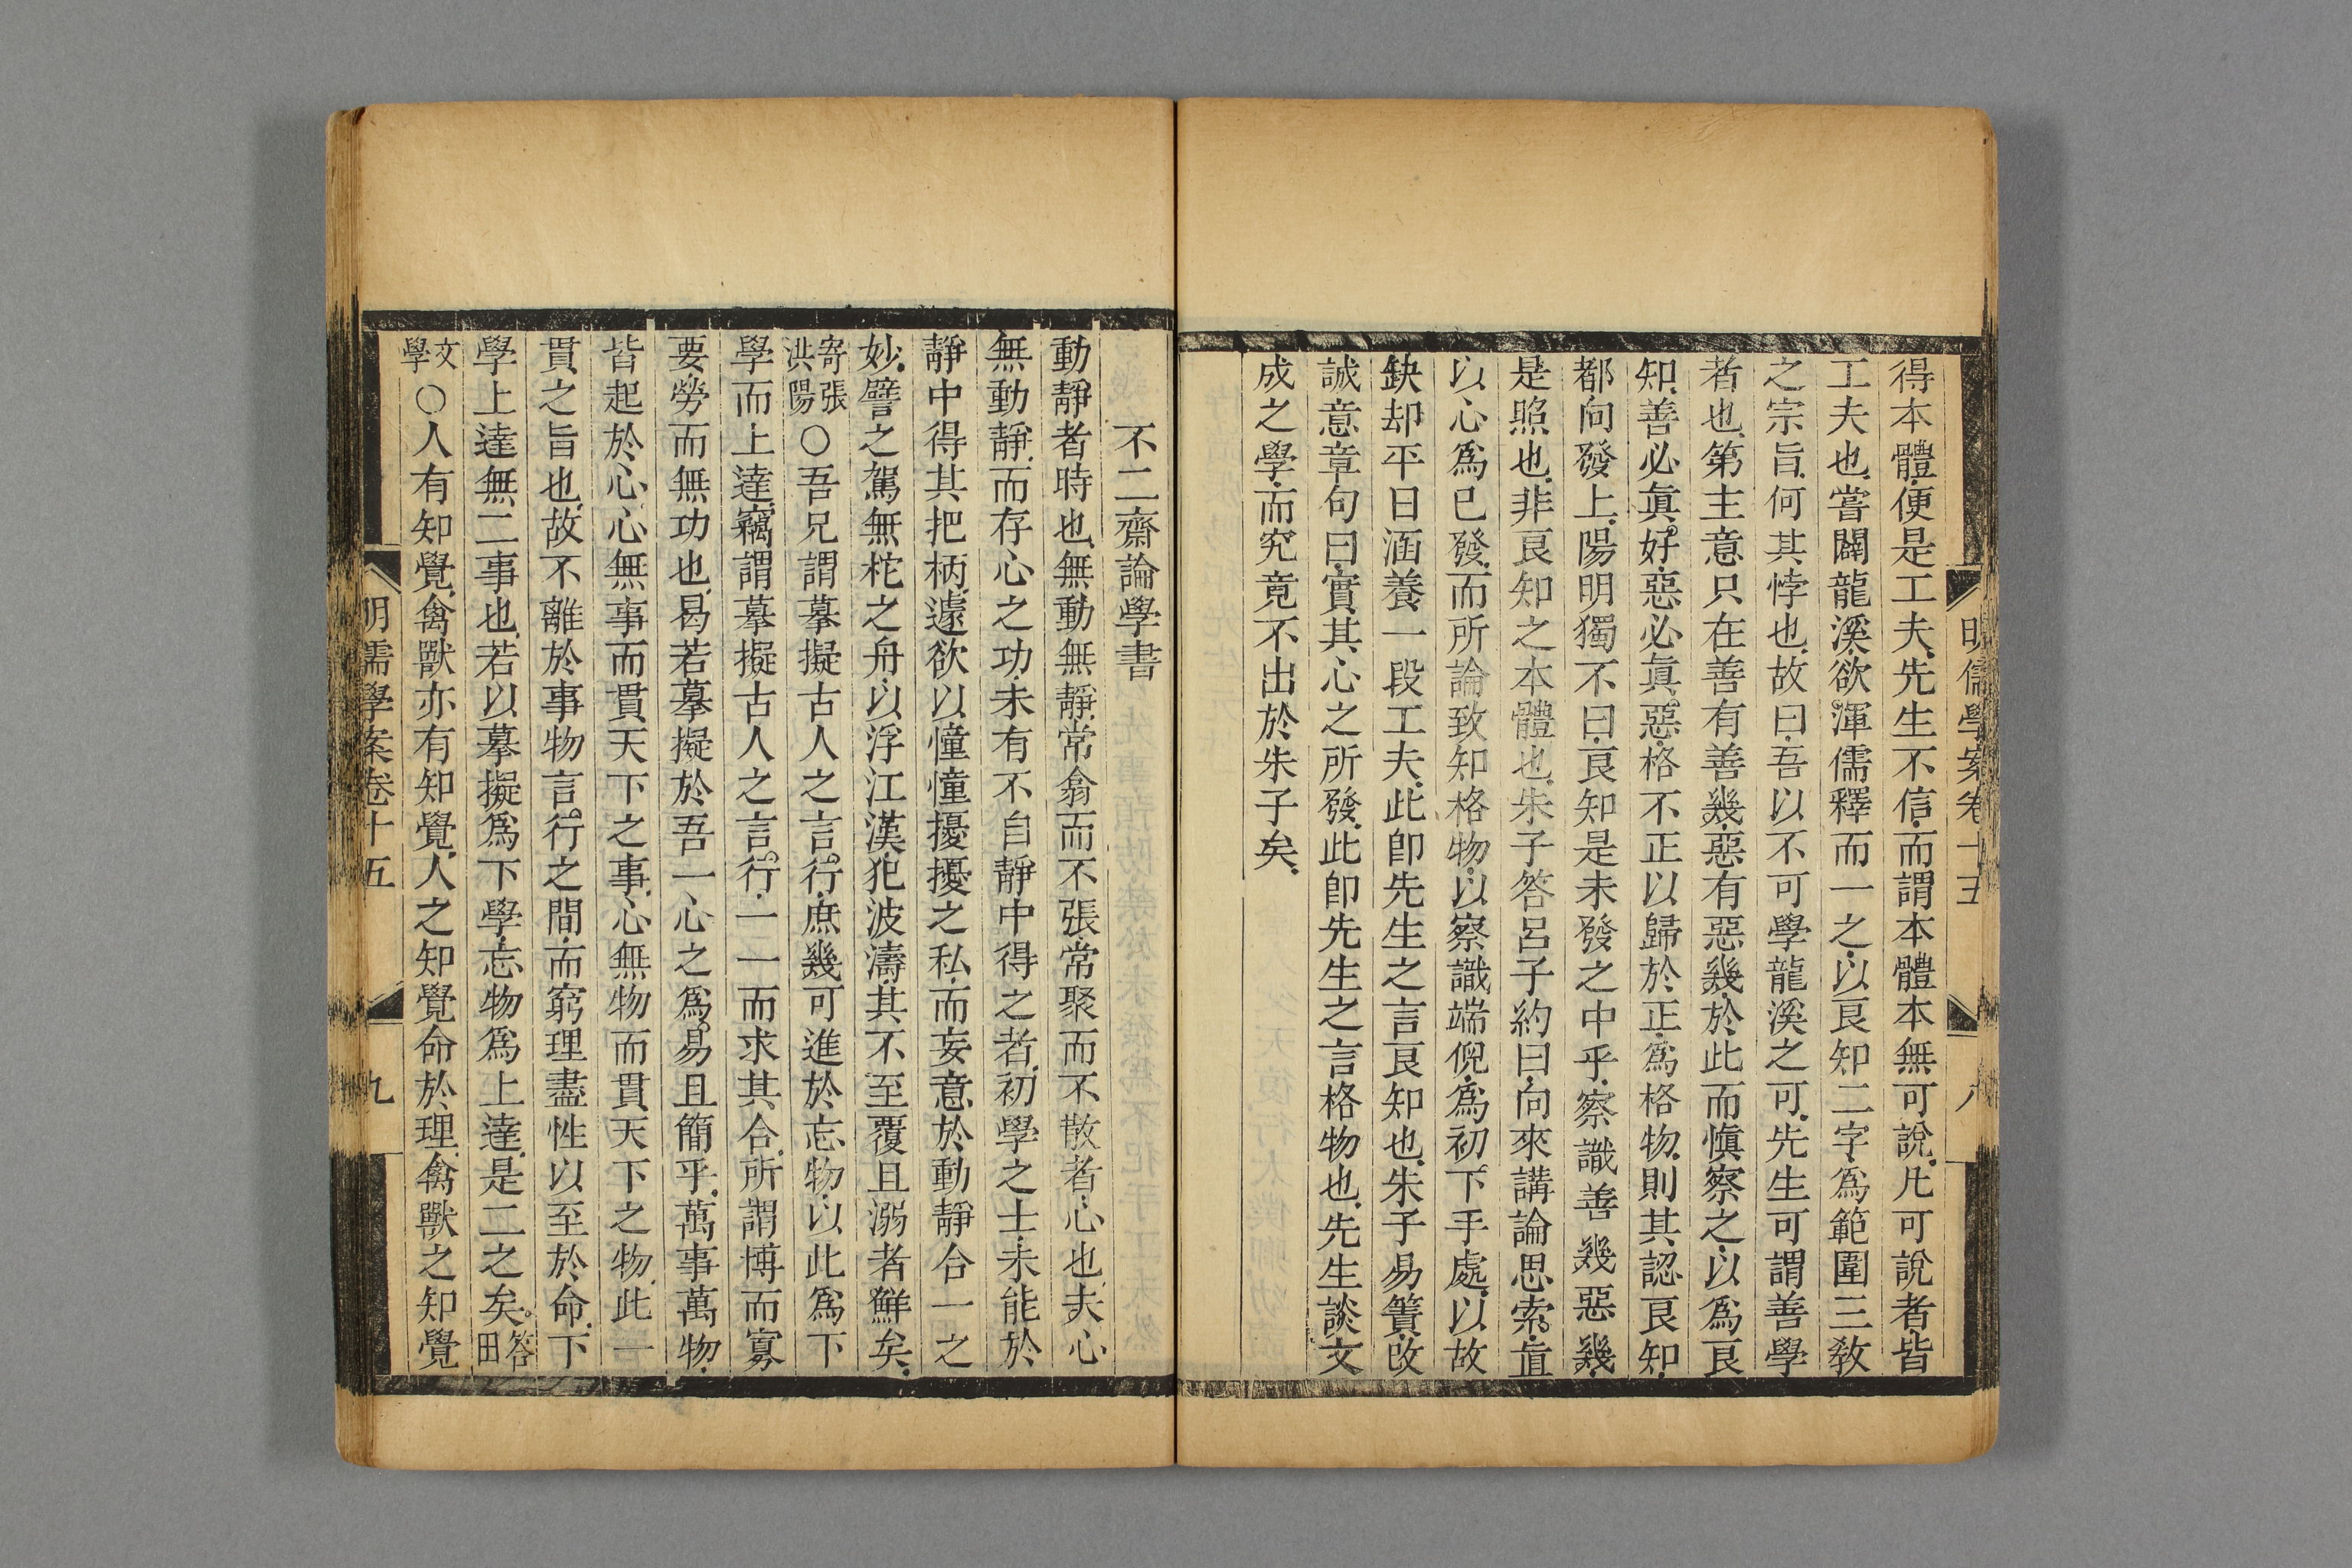 明儒學案卷十五 八
得本體便是工夫先生不信而謂本體本無可說凡可說者皆
工夫也嘗闢龍溪欲渾儒釋而一之以良知二字爲範圍三教
之宗旨何其悖也故曰吾以不可學龍溪之可先生可謂善學
者也第主意只在善有善幾惡有惡幾於此而愼察之以爲良
知善必眞好惡必眞惡格不正以歸於正爲格物則其認良知
都向發上陽明獨不曰良知是未發之中乎察識善幾惡幾
是照也非良知之本體也朱子答呂子約曰向來講論思索直
以心爲已發而所論致知格物以察識端倪爲初下手處以故
缺却平日涵養一段工夫此卽先生之言良知也朱子易簀改
誠意章句曰實其心之所發此卽先生之言格物也先生談文
成之學而究竟不出於朱子矣
不二齋論學書
動靜者時也無動無靜常翕而不張常聚而不散者心也夫心
無動靜而存心之功未有不自靜中得之者初學之士未能於
靜中得其把柄遽欲以憧憧擾擾之私而妄意於動靜合一之
妙譬之駕無柁之舟以浮江漢犯波濤其不至覆且溺者鮮矣
寄張洪陽○吾兄謂摹擬古人之言行庶幾可進於忘物以此爲下
學而上達竊謂摹擬古人之言行一一而求其合所謂博而寡
要勞而無功也曷若摹擬於吾一心之爲易且簡乎萬事萬物
皆起於心心無事而貫天下之事心無物而貫天下之物此一
貫之旨也故不離於事物言行之間而窮理盡性以至於命下
學上達無二事也若以摹擬爲下學忘物爲上達是二之矣答田
文學○人有知覺禽獸亦有知覺人之知覺命於理禽獸之知覺
明儒學案卷十五 九